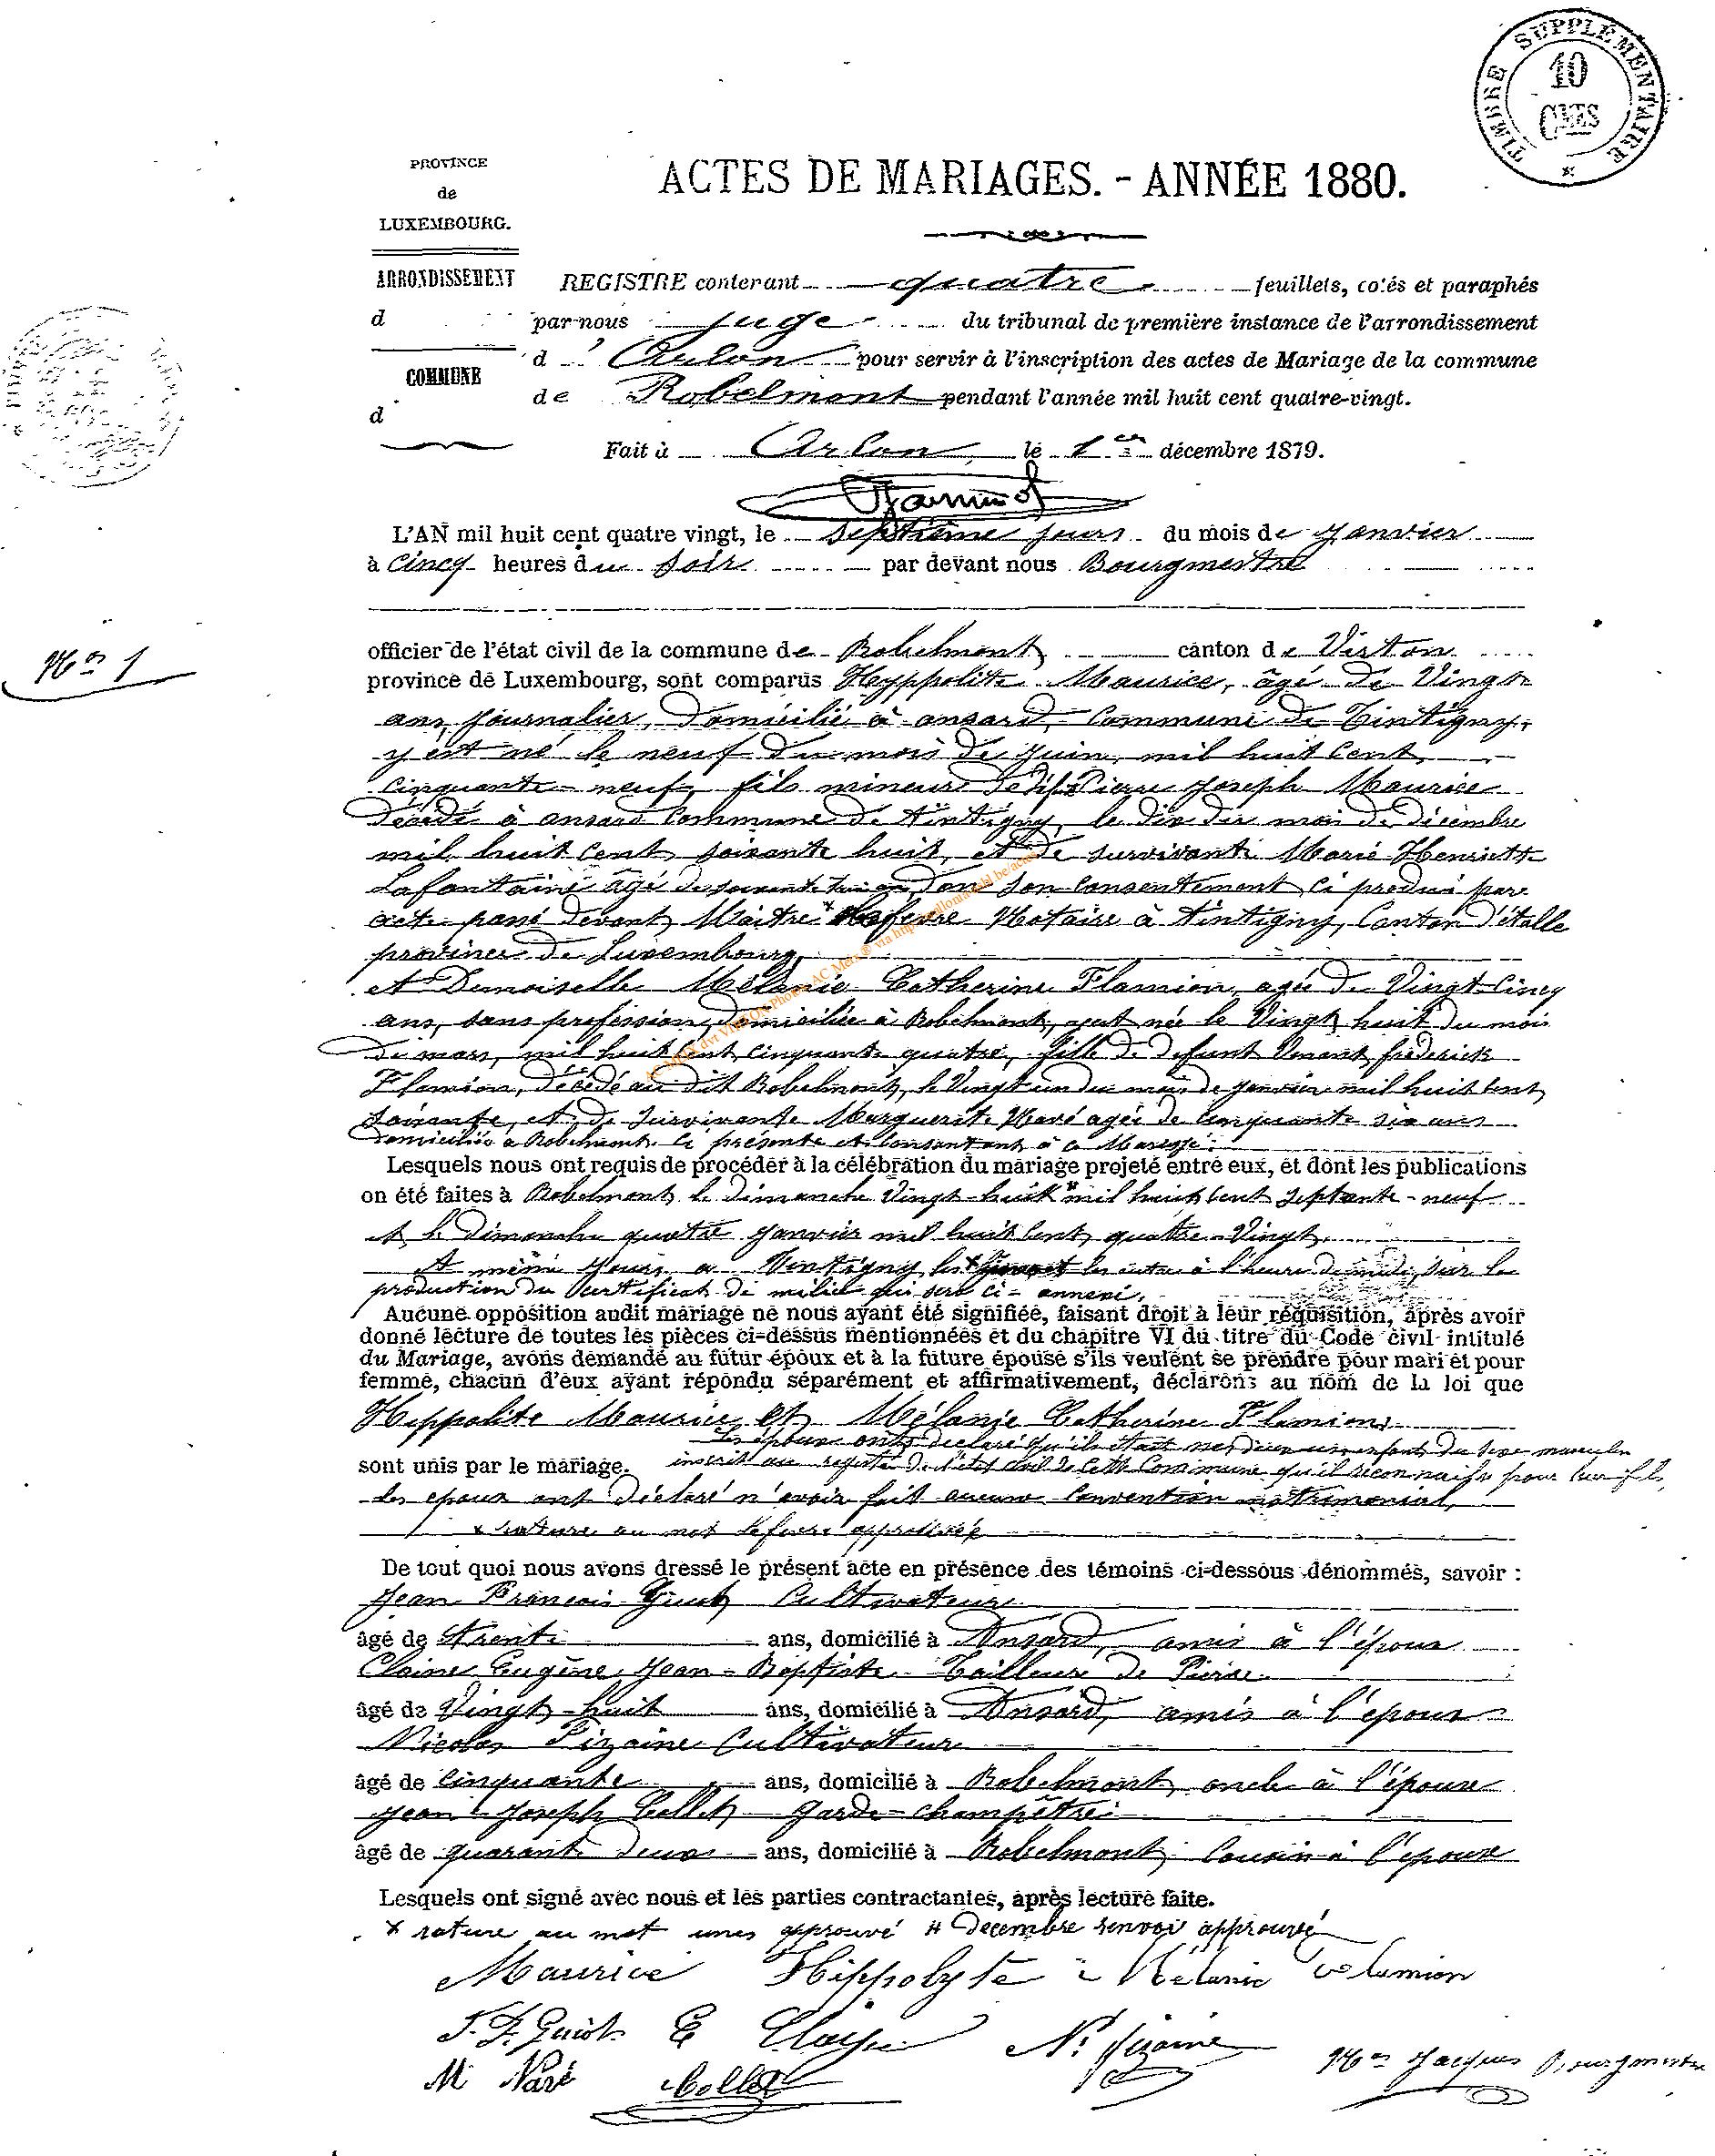 TIMBRE SUPPLÉMENTAIRE
10
CMES
PROVINCE
de
LUXEMBOURG.
ACTES DE MARIAGES. - ANNÉE 1880.
ARRONDISSEMENT
d
COMMUNE
d
REGISTRE contenant quatre feuillets, cotés et paraphés
par nous juge du tribunal de première instance de l'arrondissement
d' Arlon pour servir à l'inscription des actes de Mariage de la commune
de Robelmont pendant l'année mil huit cent quatre-vingt.
Fait à Arlon, le 1er décembre 1879.
L'AN mil huit cent quatre vingt, le septième jours du mois de janvier
à cinq heures du soir par devant nous Bourgmestre
No 1
officier de l'état civil de la commune de Robelmont canton de Virton
province de Luxembourg, sont comparus Hyppolite Maurice, âgé de Vingt
ans, journalier, domicilié à ansard, commune de Tintigny,
y est né le neuf du mois de juin, mil huit cent
cinquante-neuf, fils mineur de Pierre Joseph Maurice
décédé à ansard commune de tintigny, le dix du moi de décembre
mil huit cent soixante huit, et de survivante Marie Henriette
Lafontaine âgé de soixante ans, don son consentement ci produi par
acte passé devant Maitre * Lefevre Notaire à tintigny, Canton d'étalle
province de Luxembourg,
et Demoiselle Mélanie Catherine Flamion, agée de Vingt-Cinq
ans, sans profession, domiciliée à Robelmont, y est née le Vingt huit du mois
de mars, mil huit cent cinquante quatre, fille de defunt Venant frederick
Flamion, décédé au dit Robelmont, le Vingt un du moi de janvier mil huit cent
soixante, et de survivante Marguerite Naré agée de cinquante six ans
domiciliée à Robelmont ci présente et consentant à ce Mariage.
Lesquels nous ont requis de procéder à la célébration du mariage projeté entre eux, et dont les publications
on été faites à Robelmont le dimanche Vingt-huit # mil huit cent septante-neuf
et le dimanche quatre janvier mil huit cent quatre-Vingt,
et même jours à Tintigny les * les actes à l'heure de midi, sur la
production du certificat de milice qui sera ci-annexé.
Aucune opposition audit mariage ne nous ayant été signifiée, faisant droit à leur réquisition, après avoir
donné lecture de toutes les pièces ci-dessus mentionnées et du chapitre VI du titre du Code civil intitulé
du Mariage, avons demandé au futur époux et à la future épouse s'ils veulent se prendre pour mari et pour
femme, chacun d'eux ayant répondu séparément et affirmativement, déclarons au nom de la loi que
Hippolite Maurice et Mélanie Catherine Flamion
Les époux onts declaré qu'il était né d'eux un enfant du sexe masculin
sont unis par le mariage. inscrit au registre de l'état civil de cette Commune qu'il reconnaise pour leur fils,
les epoux ont déclaré n'avoir fait aucune convention matrimonial,
* rature au mot lefevre approuvée
De tout quoi nous avons dressé le présent acte en présence des témoins ci-dessous dénommés, savoir :
Jean François Guiot Cultivateur
âgé de trente ans, domicilié à Ansard, amis à l'époux
Claine Eugène Jean-Baptiste Tailleur de Pierre
âgé de Vingt-huit ans, domicilié à Ansard, amis à l'époux
Nicolas Pizaine Cultivateur
âgé de cinquante ans, domicilié à Robelmont, oncle à l'épouse
Jean Joseph Collet Garde-champêtre
âgé de quarante deux ans, domicilié à Robelmont, cousin à l'épouse
Lesquels ont signé avec nous et les parties contractantes, après lecture faite.
* rature au mot approuvé # decembre renvoi approuvé
Maurice Hippolyte Mélanie Flamion
J. F. Guiot E N. Pizaine
M Naré Collet Jacques Bourgmestre